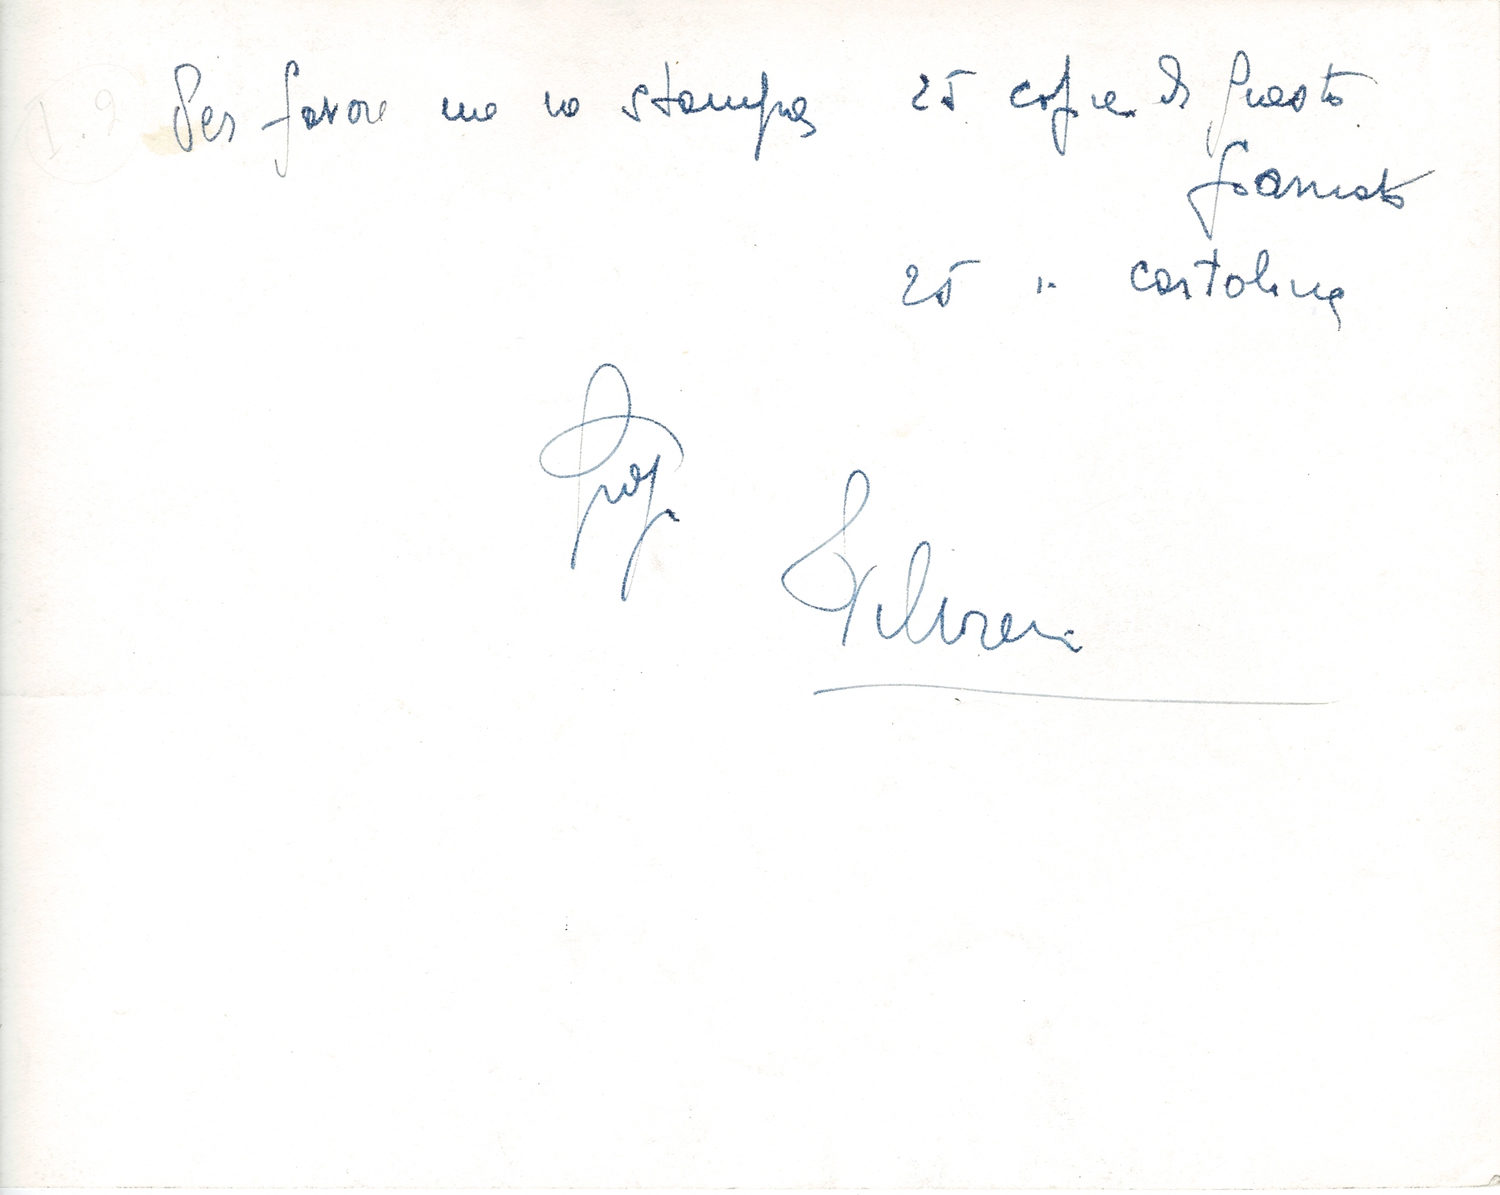 I.9
Per favore me ne stampa 25 copie di questo
formato
25 " cartolina
Prof.